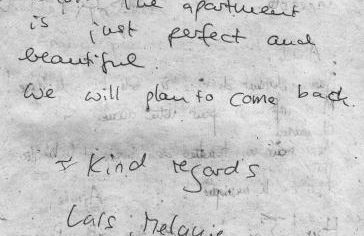 The apartment
is just perfect and
beautiful
We will plan to come back.
Kind regards
Lars, Melanie